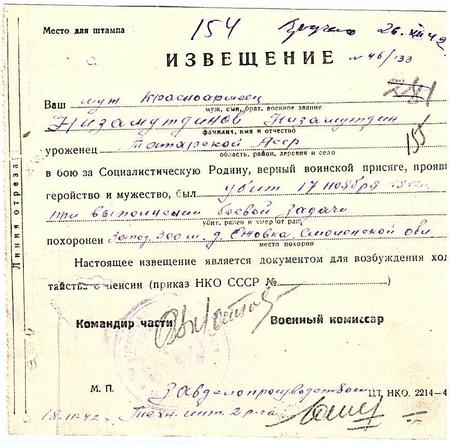 Место для штампа
154
26.XII 42
ИЗВЕЩЕНИЕ
№ 46/133
Ваш муж красноармеец
муж, сын, брат, военное звание
Низамутдинов Низамутдин
фамилия, имя и отчество
155
уроженец Татарской Асср
область, район, деревня и село
в бою за Социалистическую Родину, верный воинской присяге, прояви
геройство и мужество, был убит 17 ноября
при выполнении боевой задачи
убит, ранен и умер от ран
похоронен Запад. 300 м. д. Смоленской
место похорон
Настоящее извещение является документом для возбуждения хо
тайства о пенсии (приказ НКО СССР №)
Командир части Военный комиссар
М. П. Завделопроизводством ЦТ. НКО. 2214—4
Техн. инт. 2 р-га
Линия отреза